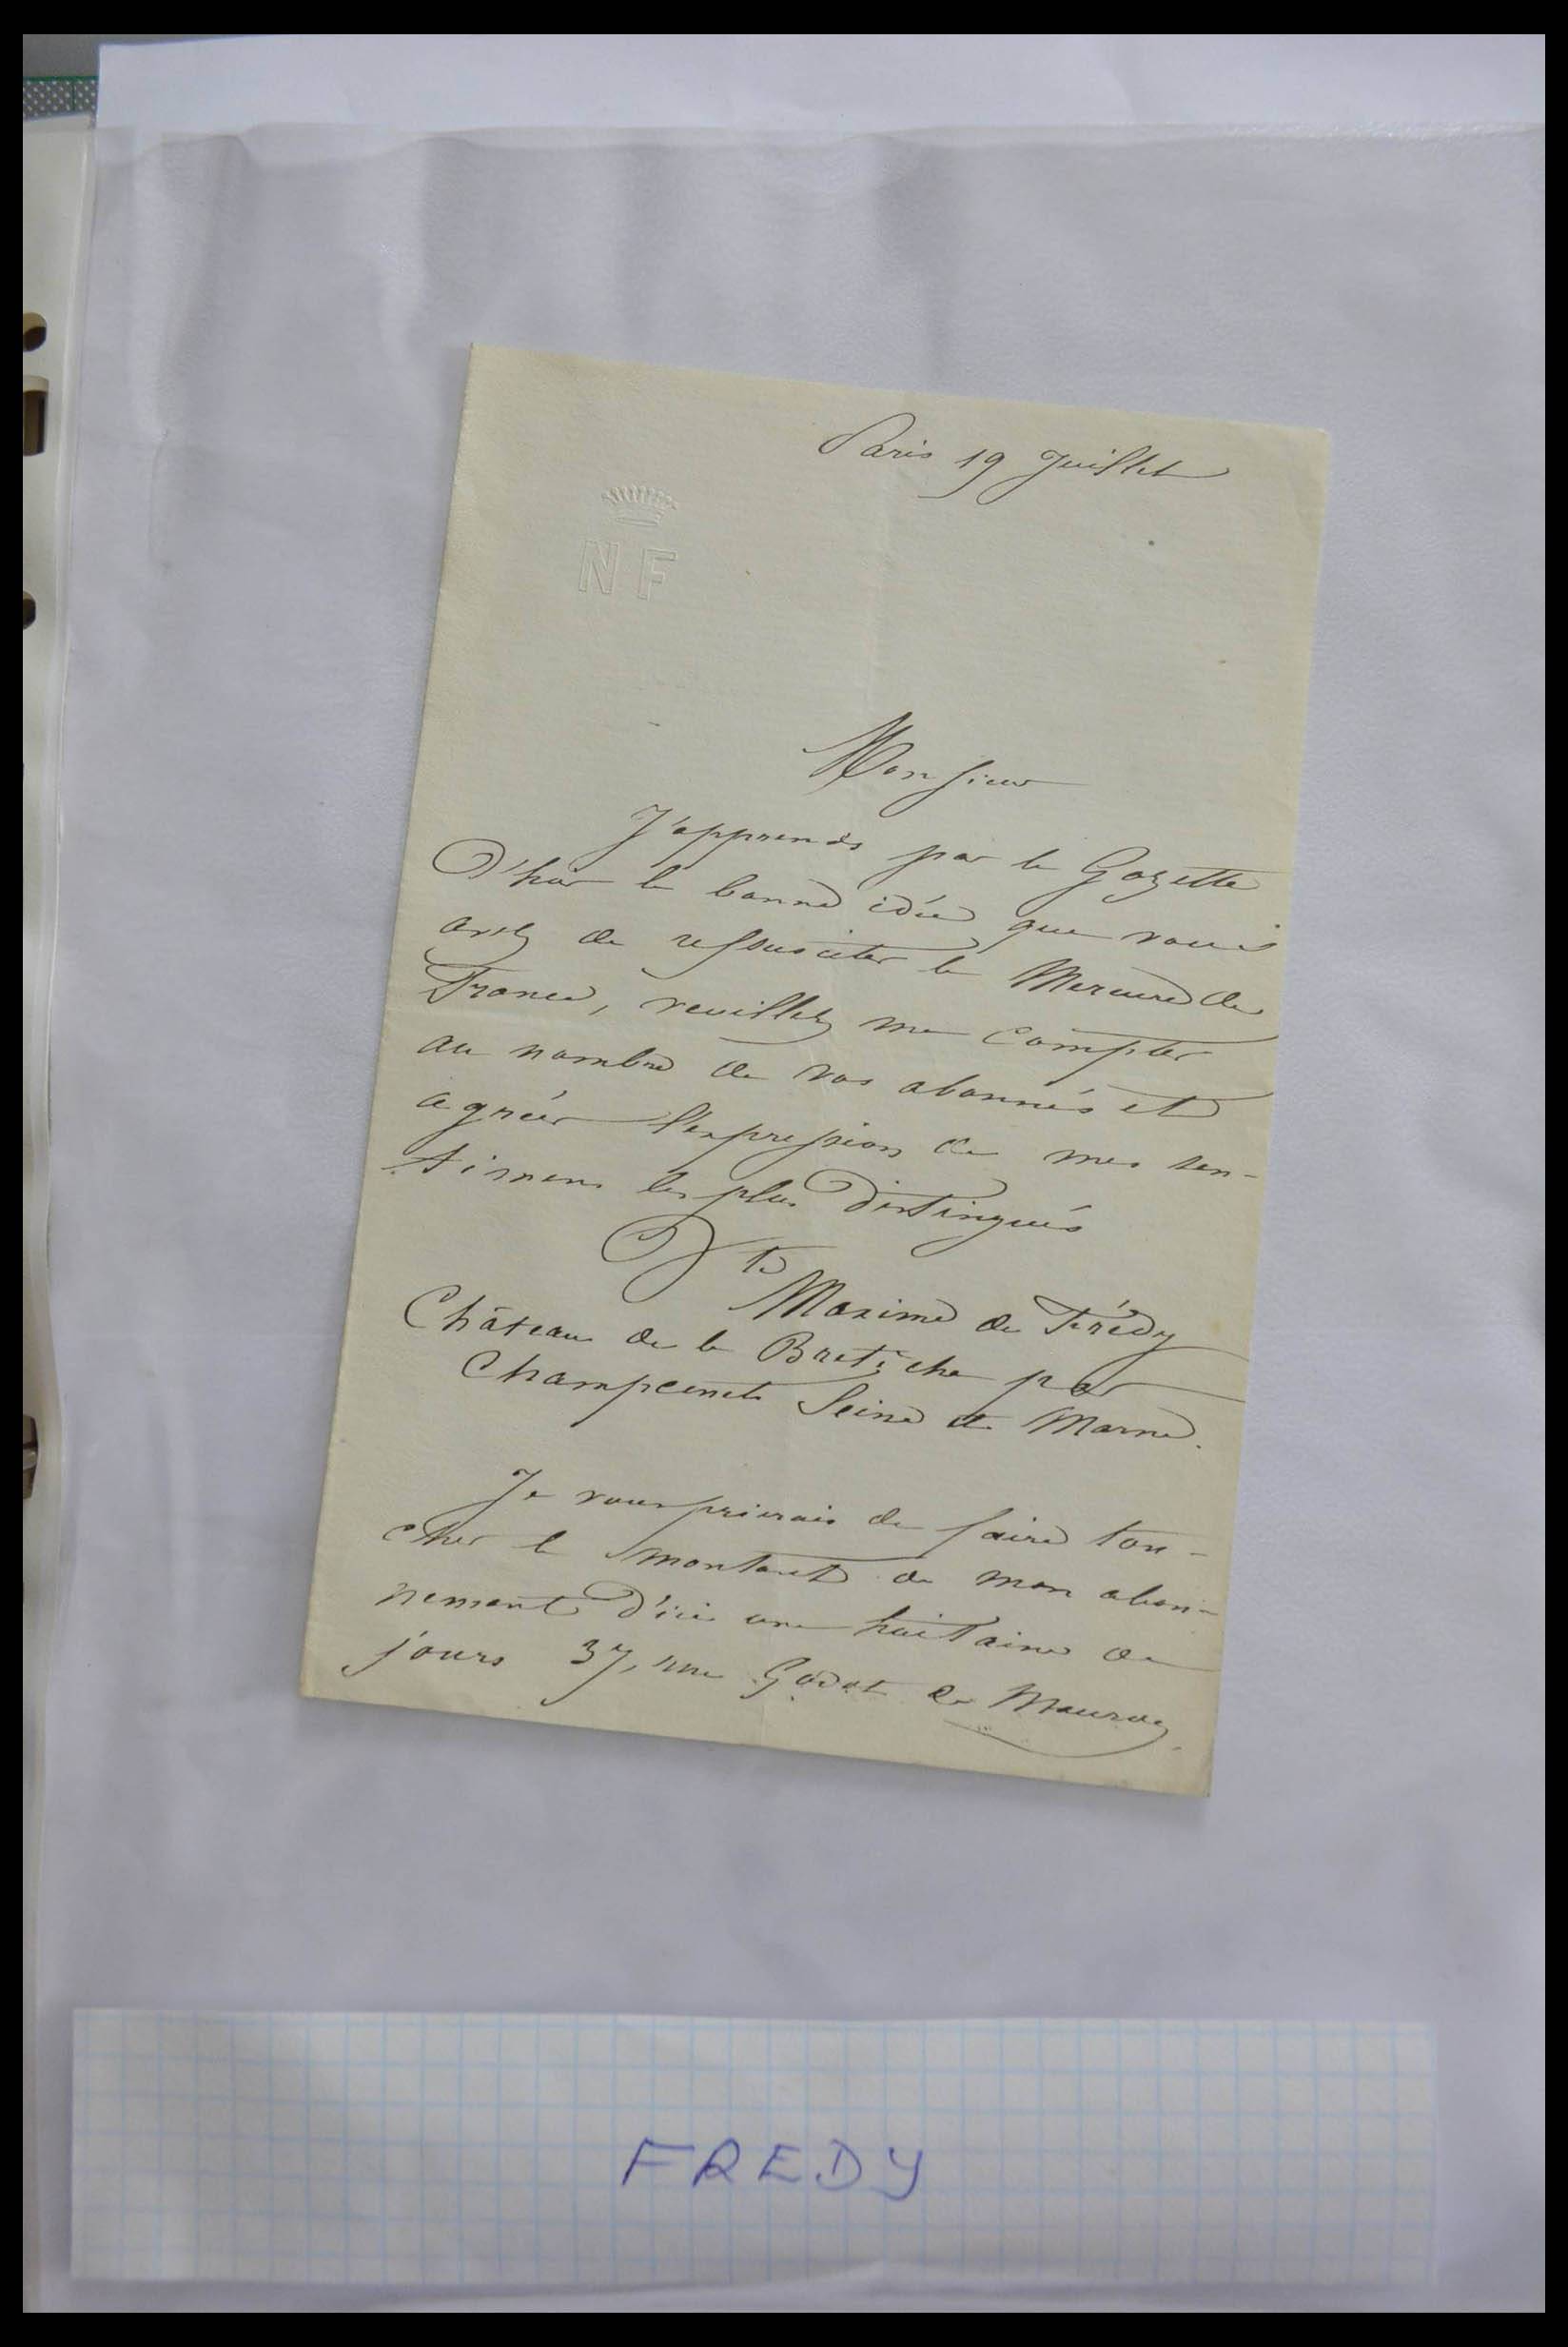 Paris 19 Juillet
N F
Monsieur
J'apprends par la Gazette
d'hier la bonne idée que vous
avez de ressusciter le Mercure de
France, veuillez me compter
au nombre de vos abonnés et
agréer l'expression de mes sen-
timens les plus distingués
Vte
Maxime de Frédy
Château de la Bretèche par
Champcenetz Seine et Marne.
Je vous prierais de faire tou-
cher le montant de mon abon-
nement d'ici une huitaine de
jours 37, rue Godot de Mauroy.
FREDY